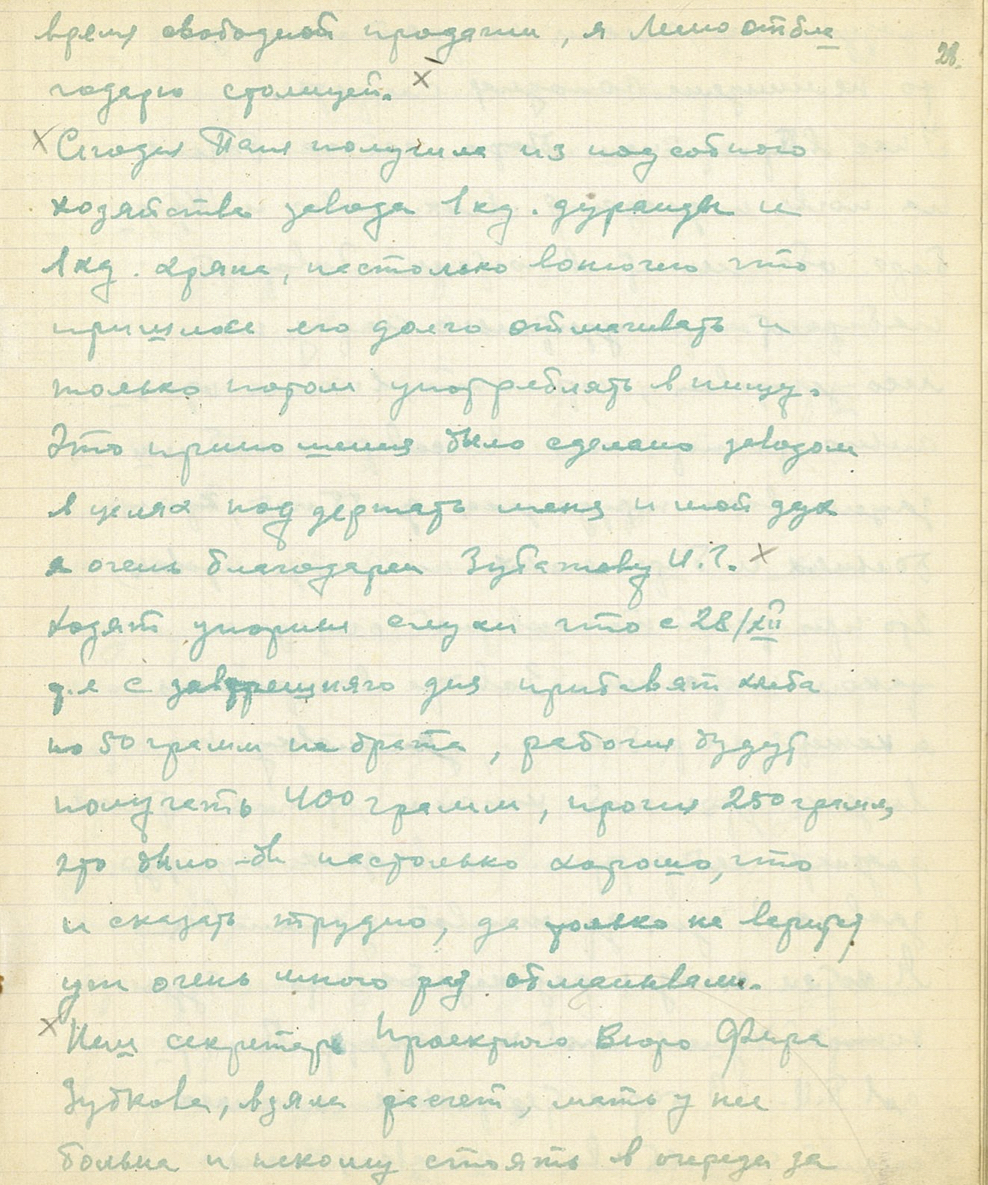 время свободной продажи, я Лешо отбла
28.
годарю столицей. ×
× Сегодня Таня получила из подсобного
хозяйства завода 1 кд. дуранды и
1 кд. хряпа, настолько вонючего что
пришлось его долго отмачивать и
только потом употреблять в пищу.
Это приношение было сделано заводом
в целях поддержать меня и мой дух
я очень благодарен И.Г. ×
Ходят упорные слухи что с 28/XII
т.е с завтрешняго дня прибавят хлеба
по 50 грамм на брата, рабочие будут
получать 400 грамм, прочие 250 грамм,
это было-бы настолько хорошо, что
и сказать трудно, да только не верится,
уж очень много раз обманывали.
× Наш секретарь Проектного Бюро Фира
Зубкова, взяла расчет, мать у нее
больна и некому стоять в очереди за